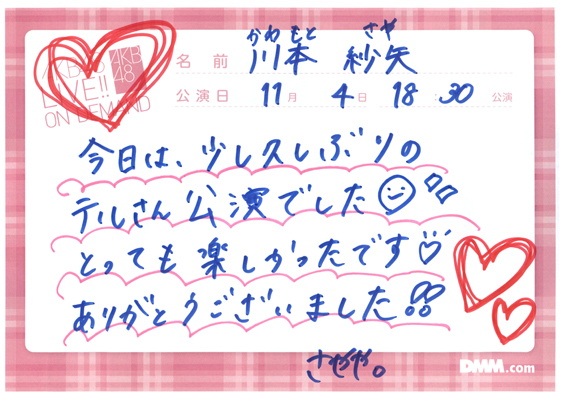 AKB48
LIVE!!
ON DEMAND
AKB
48
かわもと さや
名前 川本 紗矢
公演日 11月 4日 18:30 公演
今日は、少し久しぶりの
テルさん公演でした
とっても楽しかったです♡
ありがとうございました!!
さやや。
DMM.com